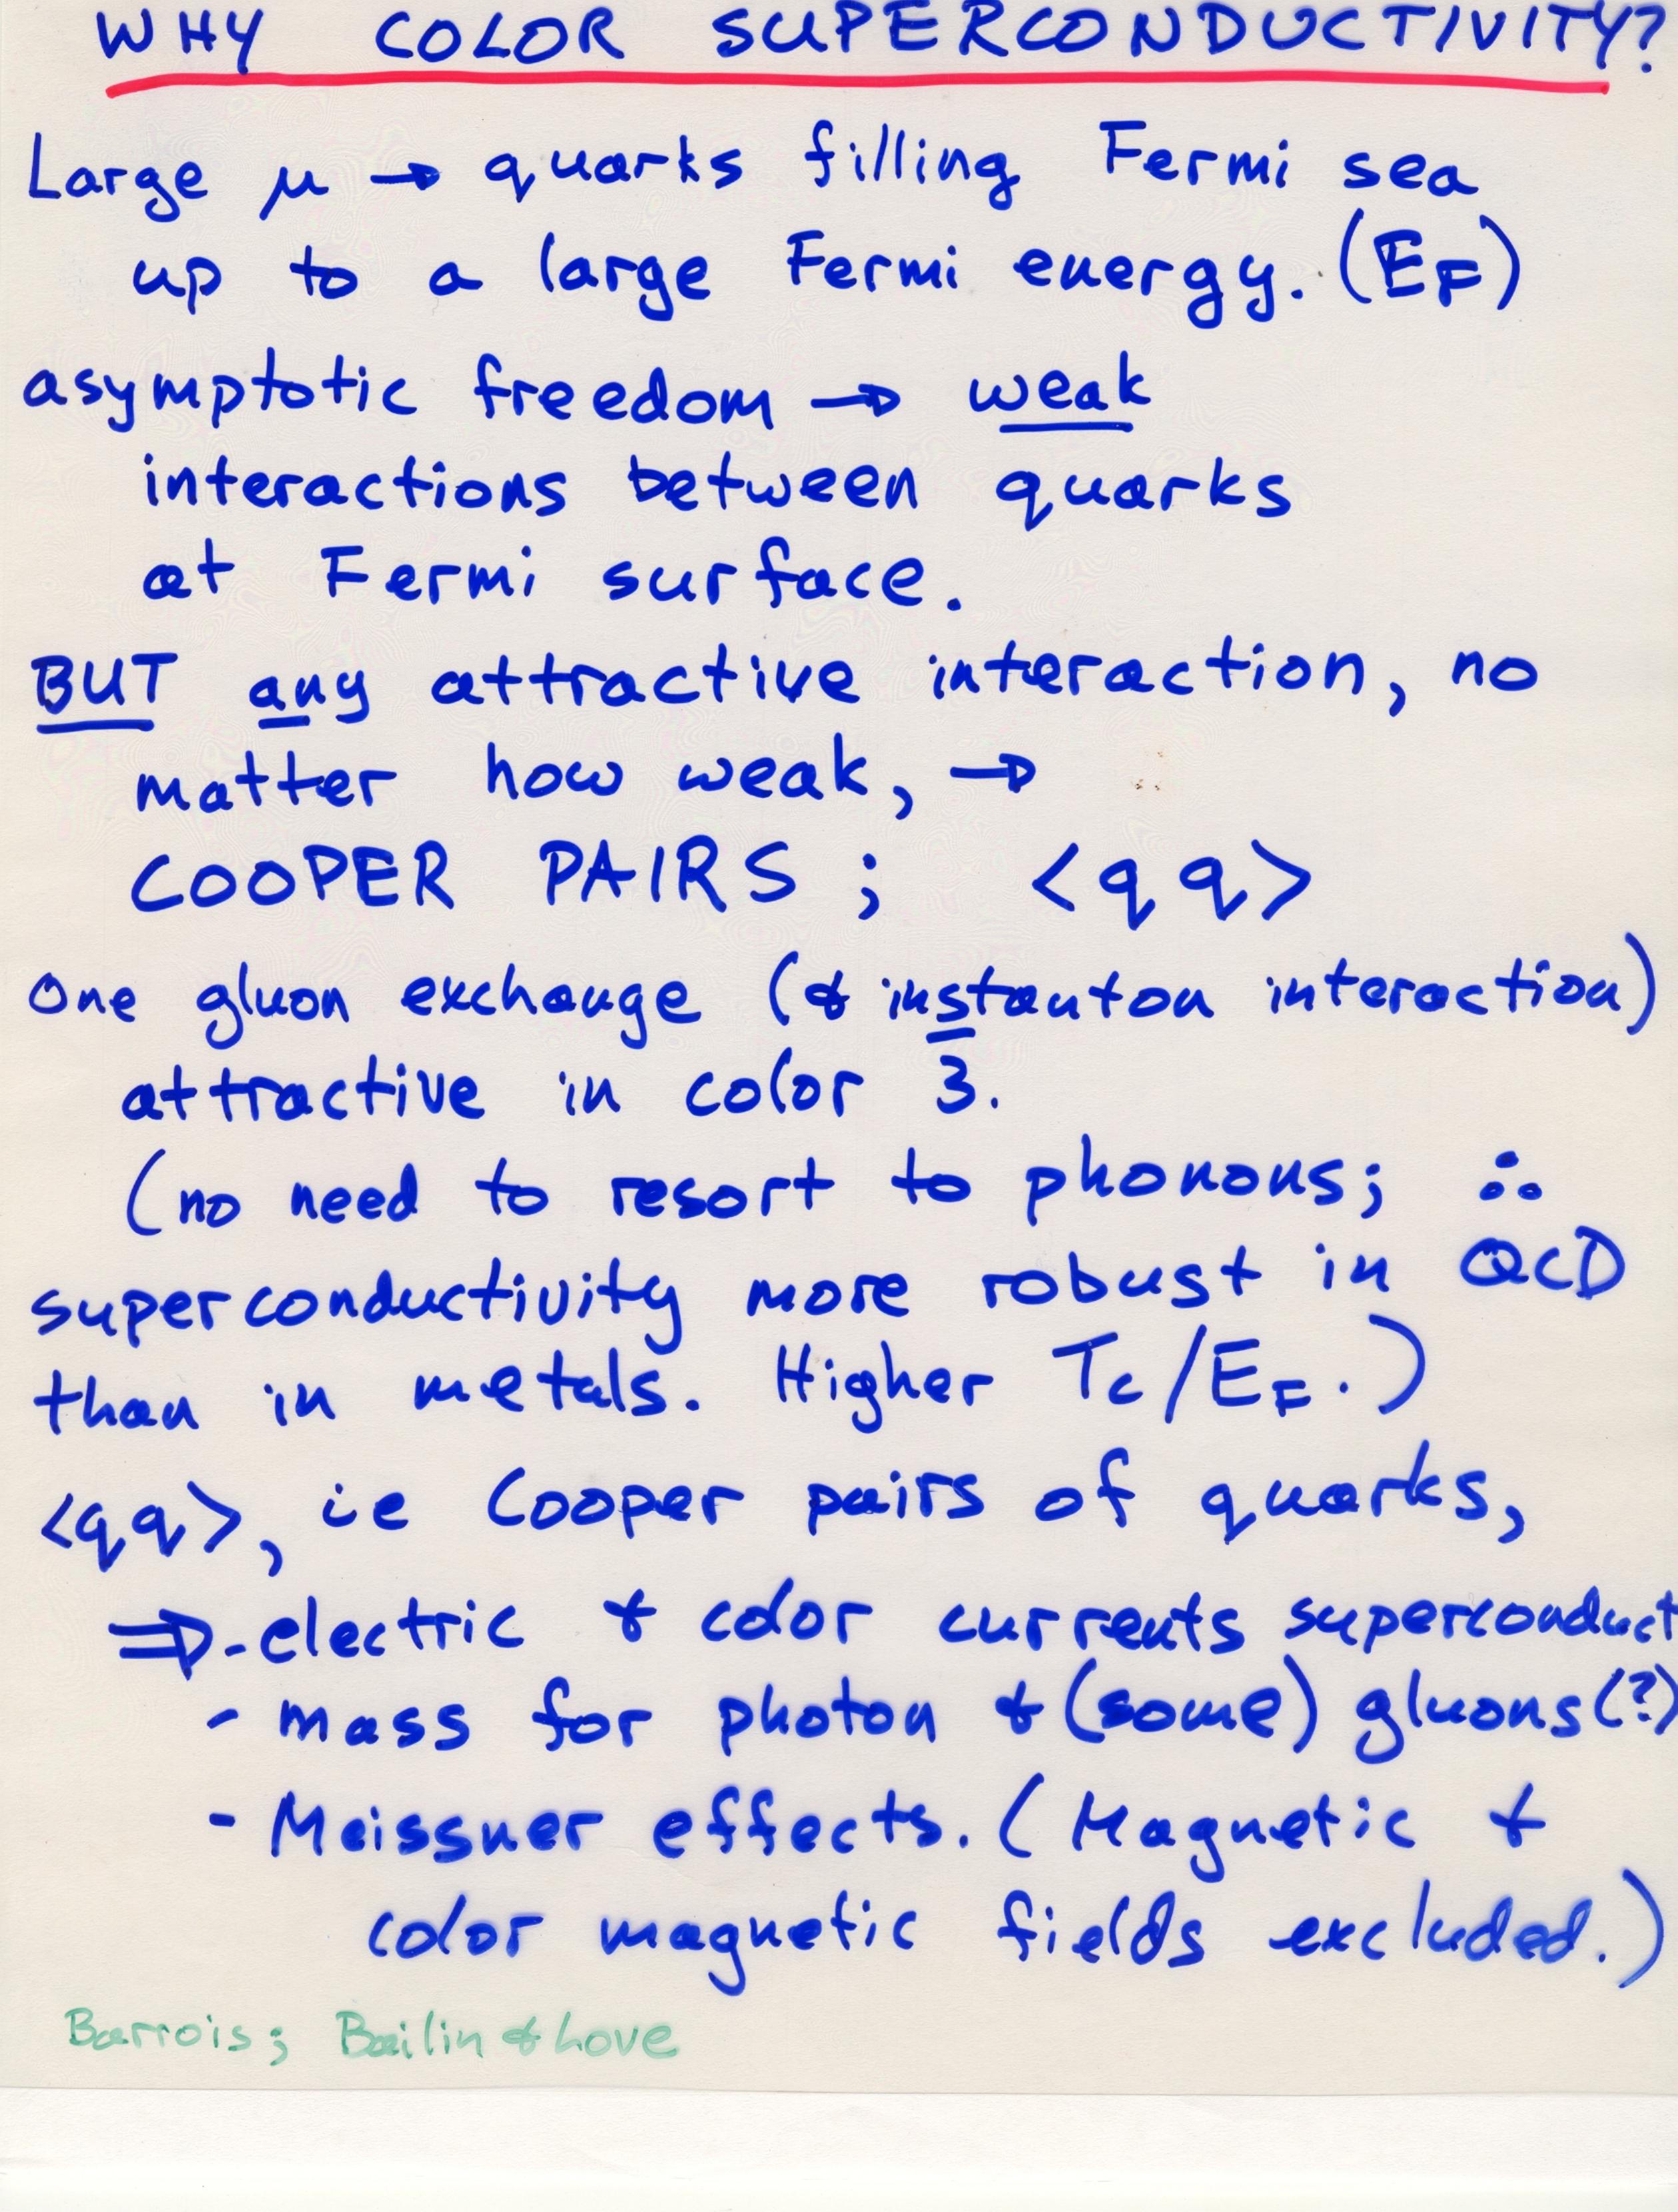 WHY COLOR SUPERCONDUCTIVITY?
Large μ → quarks filling Fermi sea
up to a large Fermi energy. (E_F)
asymptotic freedom → weak
interactions between quarks
at Fermi surface.
BUT any attractive interaction, no
matter how weak, →
COOPER PAIRS ; <qq>
One gluon exchange (& instanton interaction)
attractive in color 3̄.
(no need to resort to phonons; ∴
superconductivity more robust in QCD
than in metals. Higher T_c/E_F.)
<qq>, ie Cooper pairs of quarks,
⇒ - electric & color currents superconduct
- mass for photon & (some) gluons(?)
- Meissner effects. (Magnetic &
color magnetic fields excluded.)
Barrois; Bailin & Love